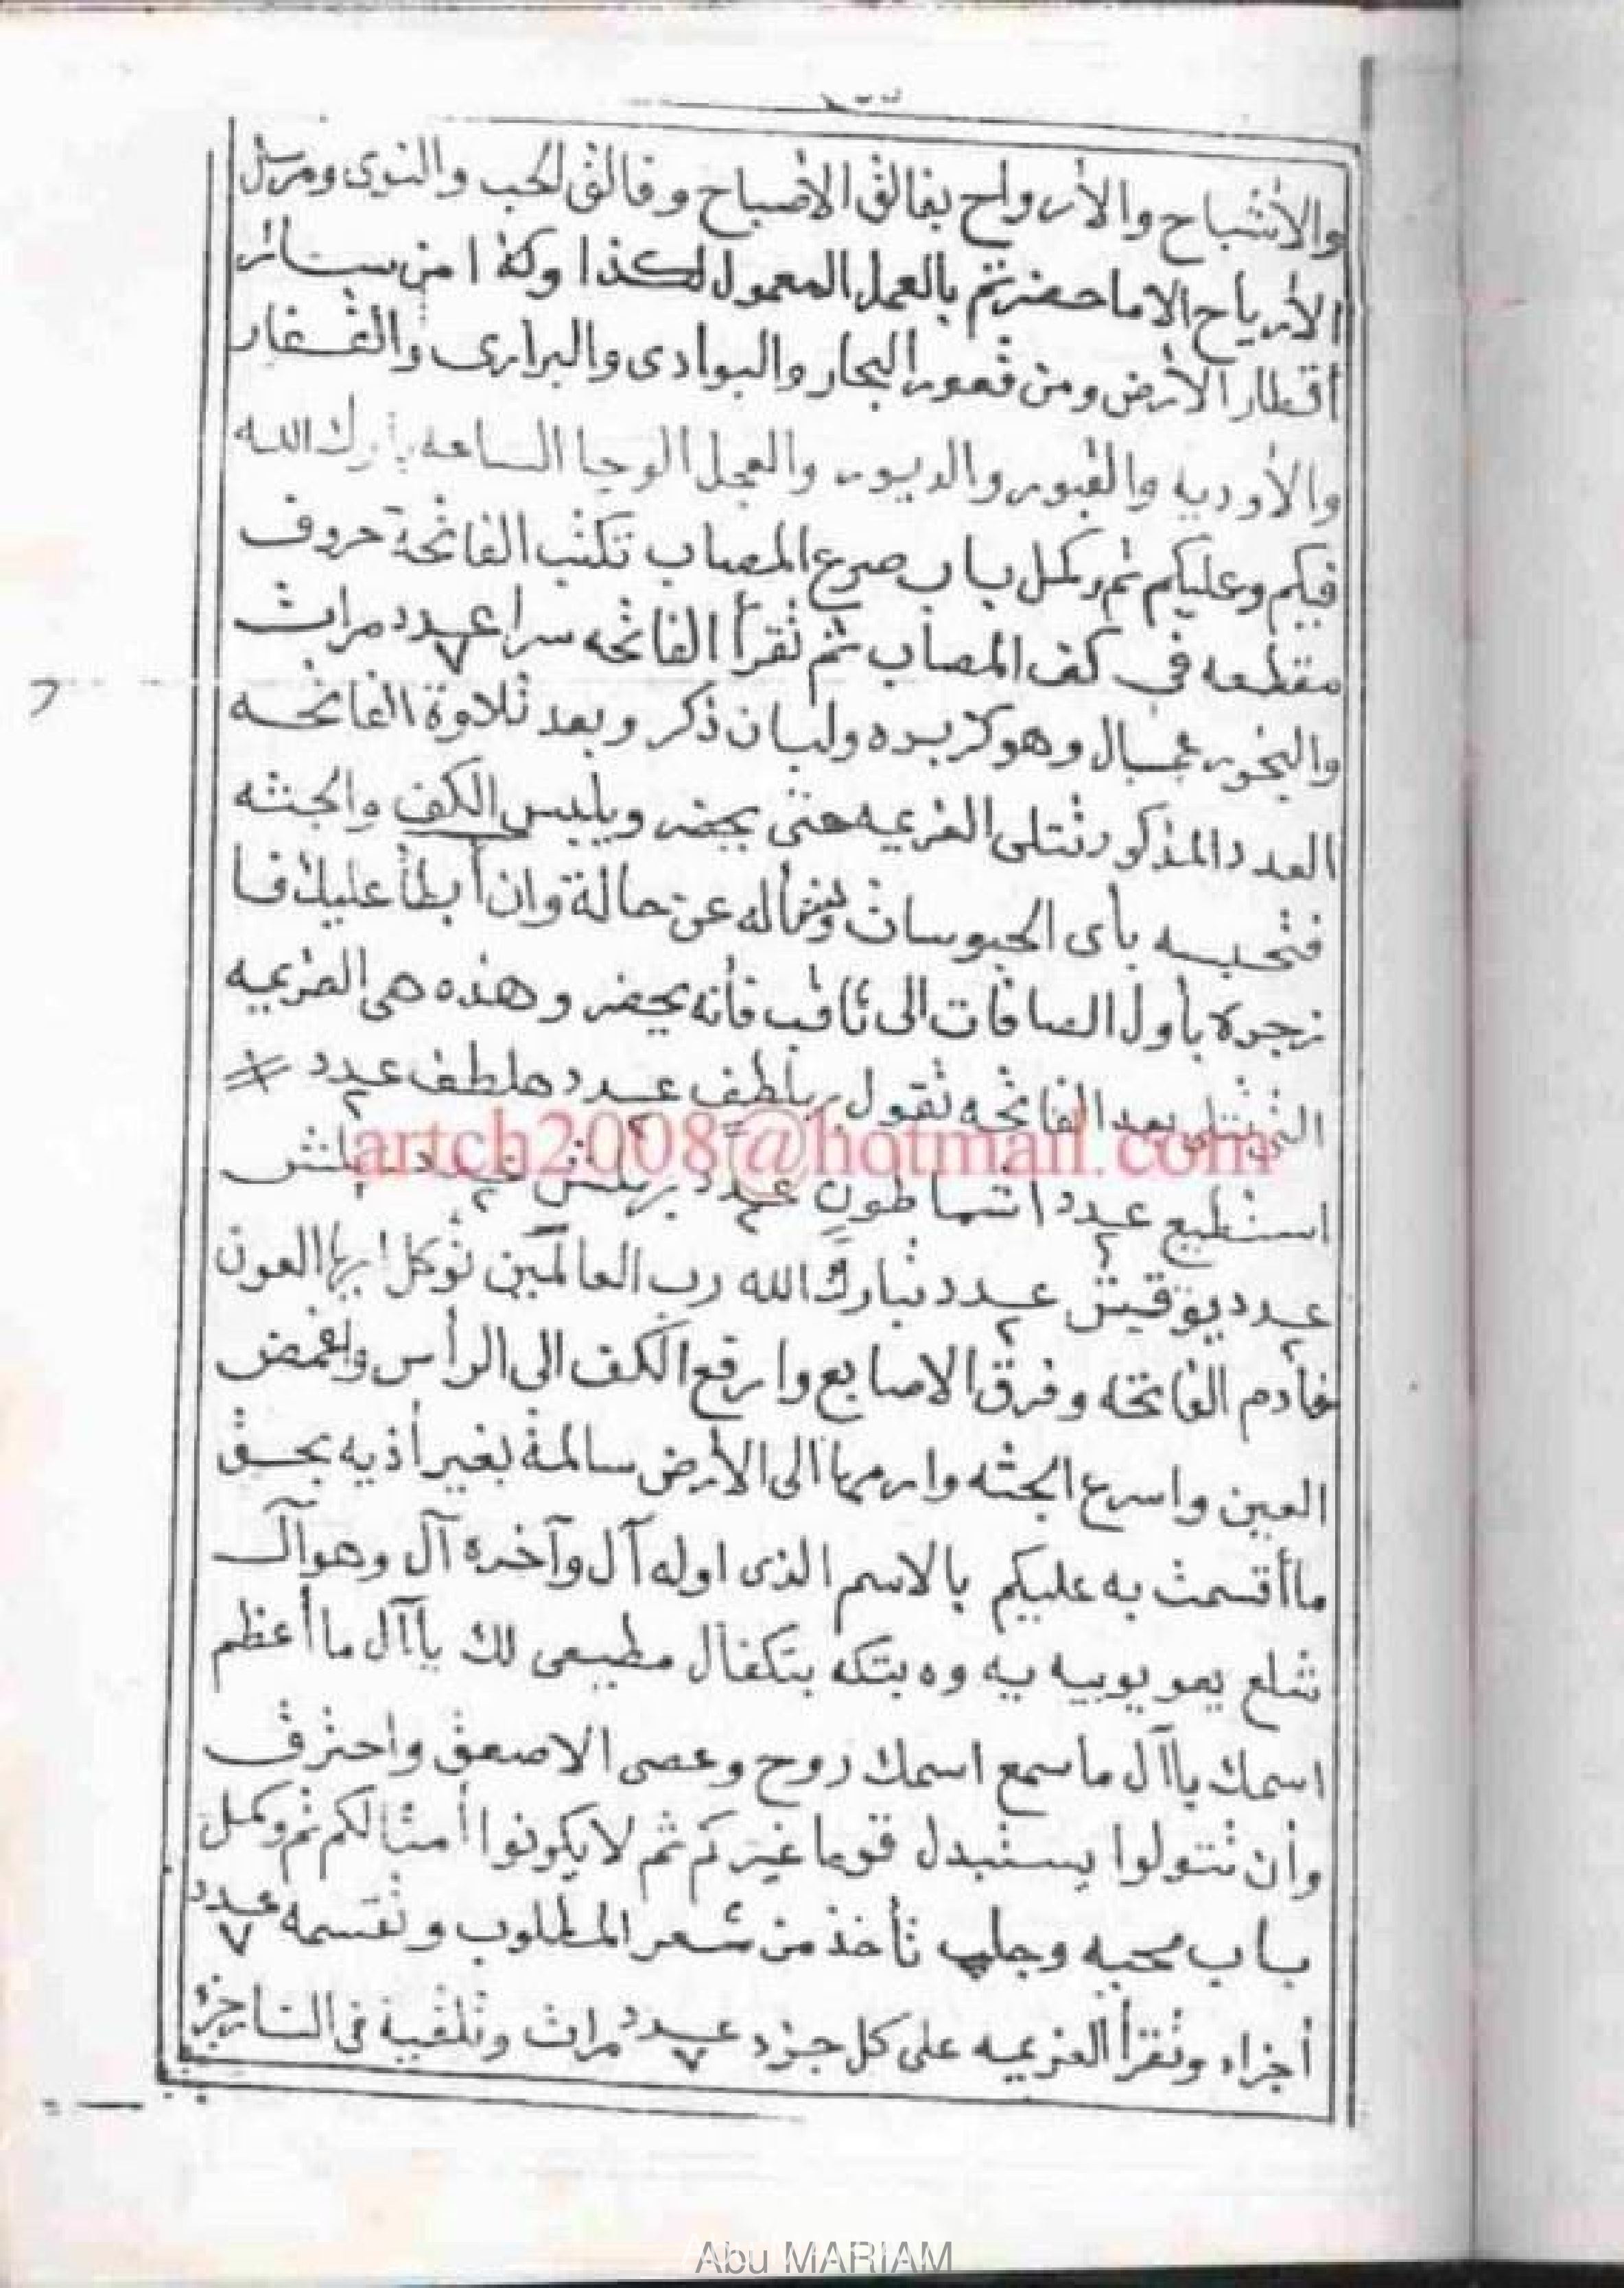 والأشباح والأرواح بفالق الأصباح وفالق الحب والنوى ومرسل
الأرياح الا ما حضرتم بالعمل المعمول لكذا وكذا من سائر
أقطار الأرض ومن قعور البحار والبوادى والبرارى والقفار
والأوديه والقبور والديور والعجل الوحا الساعه بارك الله
فيكم وعليكم ثم وكمل باب صرع المصاب تكتب الفاتحة حروف
مقطعه في كف المصاب ثم تقرأ الفاتحه سرا عدد ٧ مرات
والبخور عمال وهو كزبره ولبان ذكر وبعد تلاوة الفاتحه
العدد المذكور تتلى العزيمه حتى يحضر ويلبس الكف والجثه
فتحبسه بأى الحبوسات وتسأله عن حالة وان أبطأ عليك فا
زجره بأول الصافات الى ثاقب فأنه يحضر وهذه هى العزيمه
التى تتلى بعد الفاتحه تقول بلطف عدد ٢ هلطف عدد ٢
artch2008@hotmail.com
استطيع عدد ٢ اشماطون عدد ٢
عدد ٢ يوقيش عدد ٢ تبارك الله رب العالمين توكل ايها العون
خادم الفاتحه وفرق الاصابع وارفع الكف الى الرأس واغمض
العين واسرع الجثه وارمها الى الأرض سالمة بغير أذيه بحق
ما أقسمت به عليكم بالاسم الذى اوله آل وآخره آل وهو آل
شلع يعو يوبيه يه وه بتكه بتكفال مطيعى لك يا آل ما أعظم
اسمك يا آل ما سمع اسمك روح وعصى الا صعق واحترق
وأن تتولوا يستبدل قوما غيركم ثم لا يكونوا أمثالكم ثم وكمل
باب محبه وجلب تأخذ من شعر المطلوب وتقسمه عدد ٧
أجزاء وتقرأ العزيمه على كل جزء عدد ٧ مرات وتلقية فى النار
Abu MARIAM